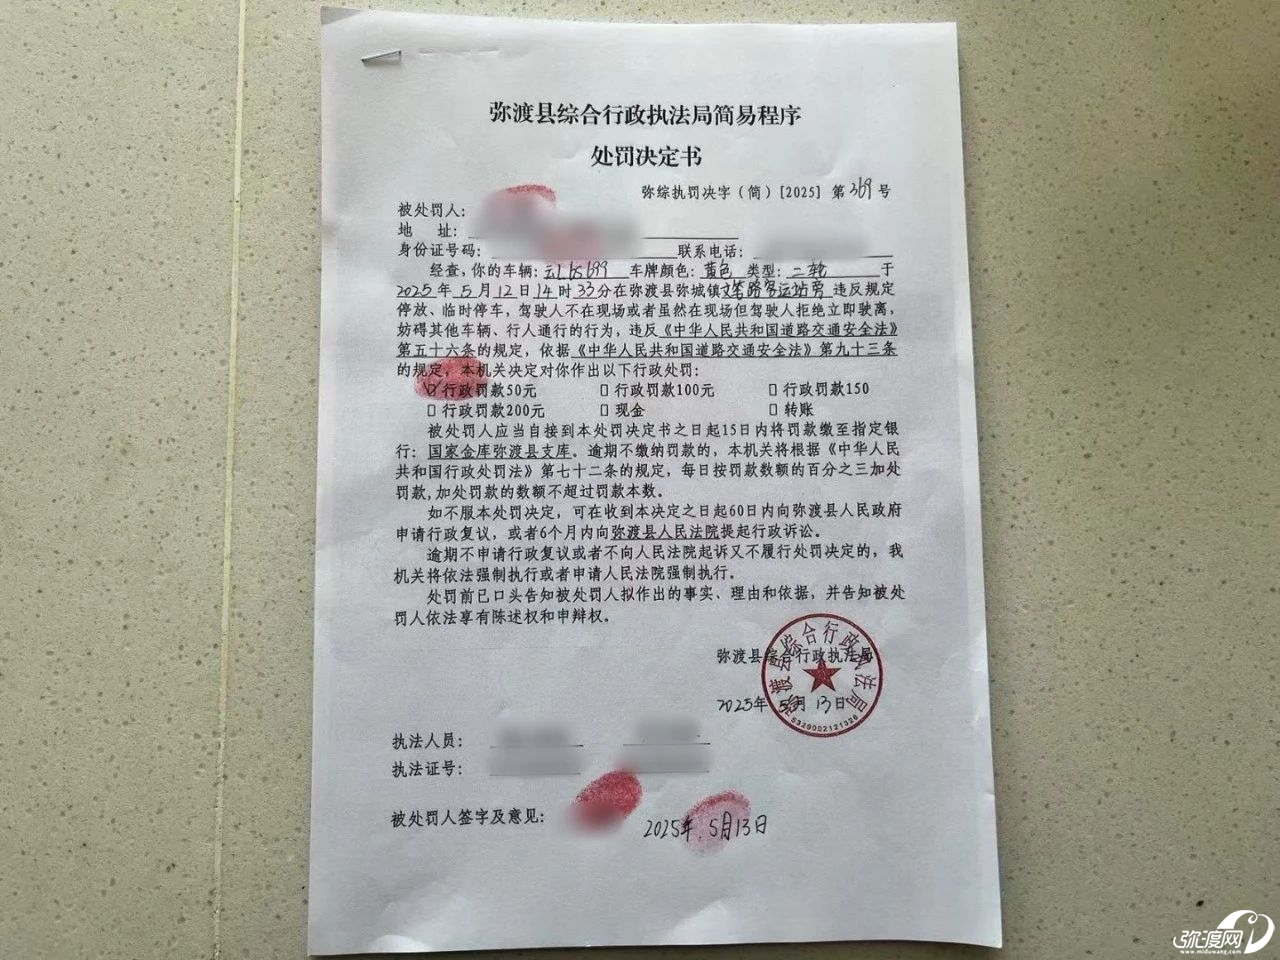 弥渡县综合行政执法局简易程序
处罚决定书
弥综执罚决字（简）[2025] 第369号
被处罚人：
地 址：
身份证号码： 联系电话：
经查，你的车辆： 车牌颜色：黄色 类型：二轮 于
2025年5月12日14时33分在弥渡县弥城镇文笔路客运站旁违反规定
停放、临时停车，驾驶人不在现场或者虽然在现场但驾驶人拒绝立即驶离，
妨碍其他车辆、行人通行的行为，违反《中华人民共和国道路交通安全法》
第五十六条的规定，依据《中华人民共和国道路交通安全法》第九十三条
的规定，本机关决定对你作出以下行政处罚：
☑ 行政罚款50元 □ 行政罚款100元 □ 行政罚款150
□ 行政罚款200元 □ 现金 □ 转账
被处罚人应当自接到本处罚决定书之日起15日内将罚款缴至指定银
行：国家金库弥渡县支库。逾期不缴纳罚款的，本机关将根据《中华人民
共和国行政处罚法》第七十二条的规定，每日按罚款数额的百分之三加处
罚款,加处罚款的数额不超过罚款本数。
如不服本处罚决定，可在收到本决定之日起60日内向弥渡县人民政府
申请行政复议，或者6个月内向弥渡县人民法院提起行政诉讼。
逾期不申请行政复议或者不向人民法院起诉又不履行处罚决定的，我
机关将依法强制执行或者申请人民法院强制执行。
处罚前已口头告知被处罚人拟作出的事实、理由和依据，并告知被处
罚人依法享有陈述权和申辩权。
弥渡县综合行政执法局
2025年5月13日
弥渡县综合行政执法局
5329002121326
执法人员：
执法证号：
被处罚人签字及意见：
2025年.5月13日
弥渡网
www.miduwang.com